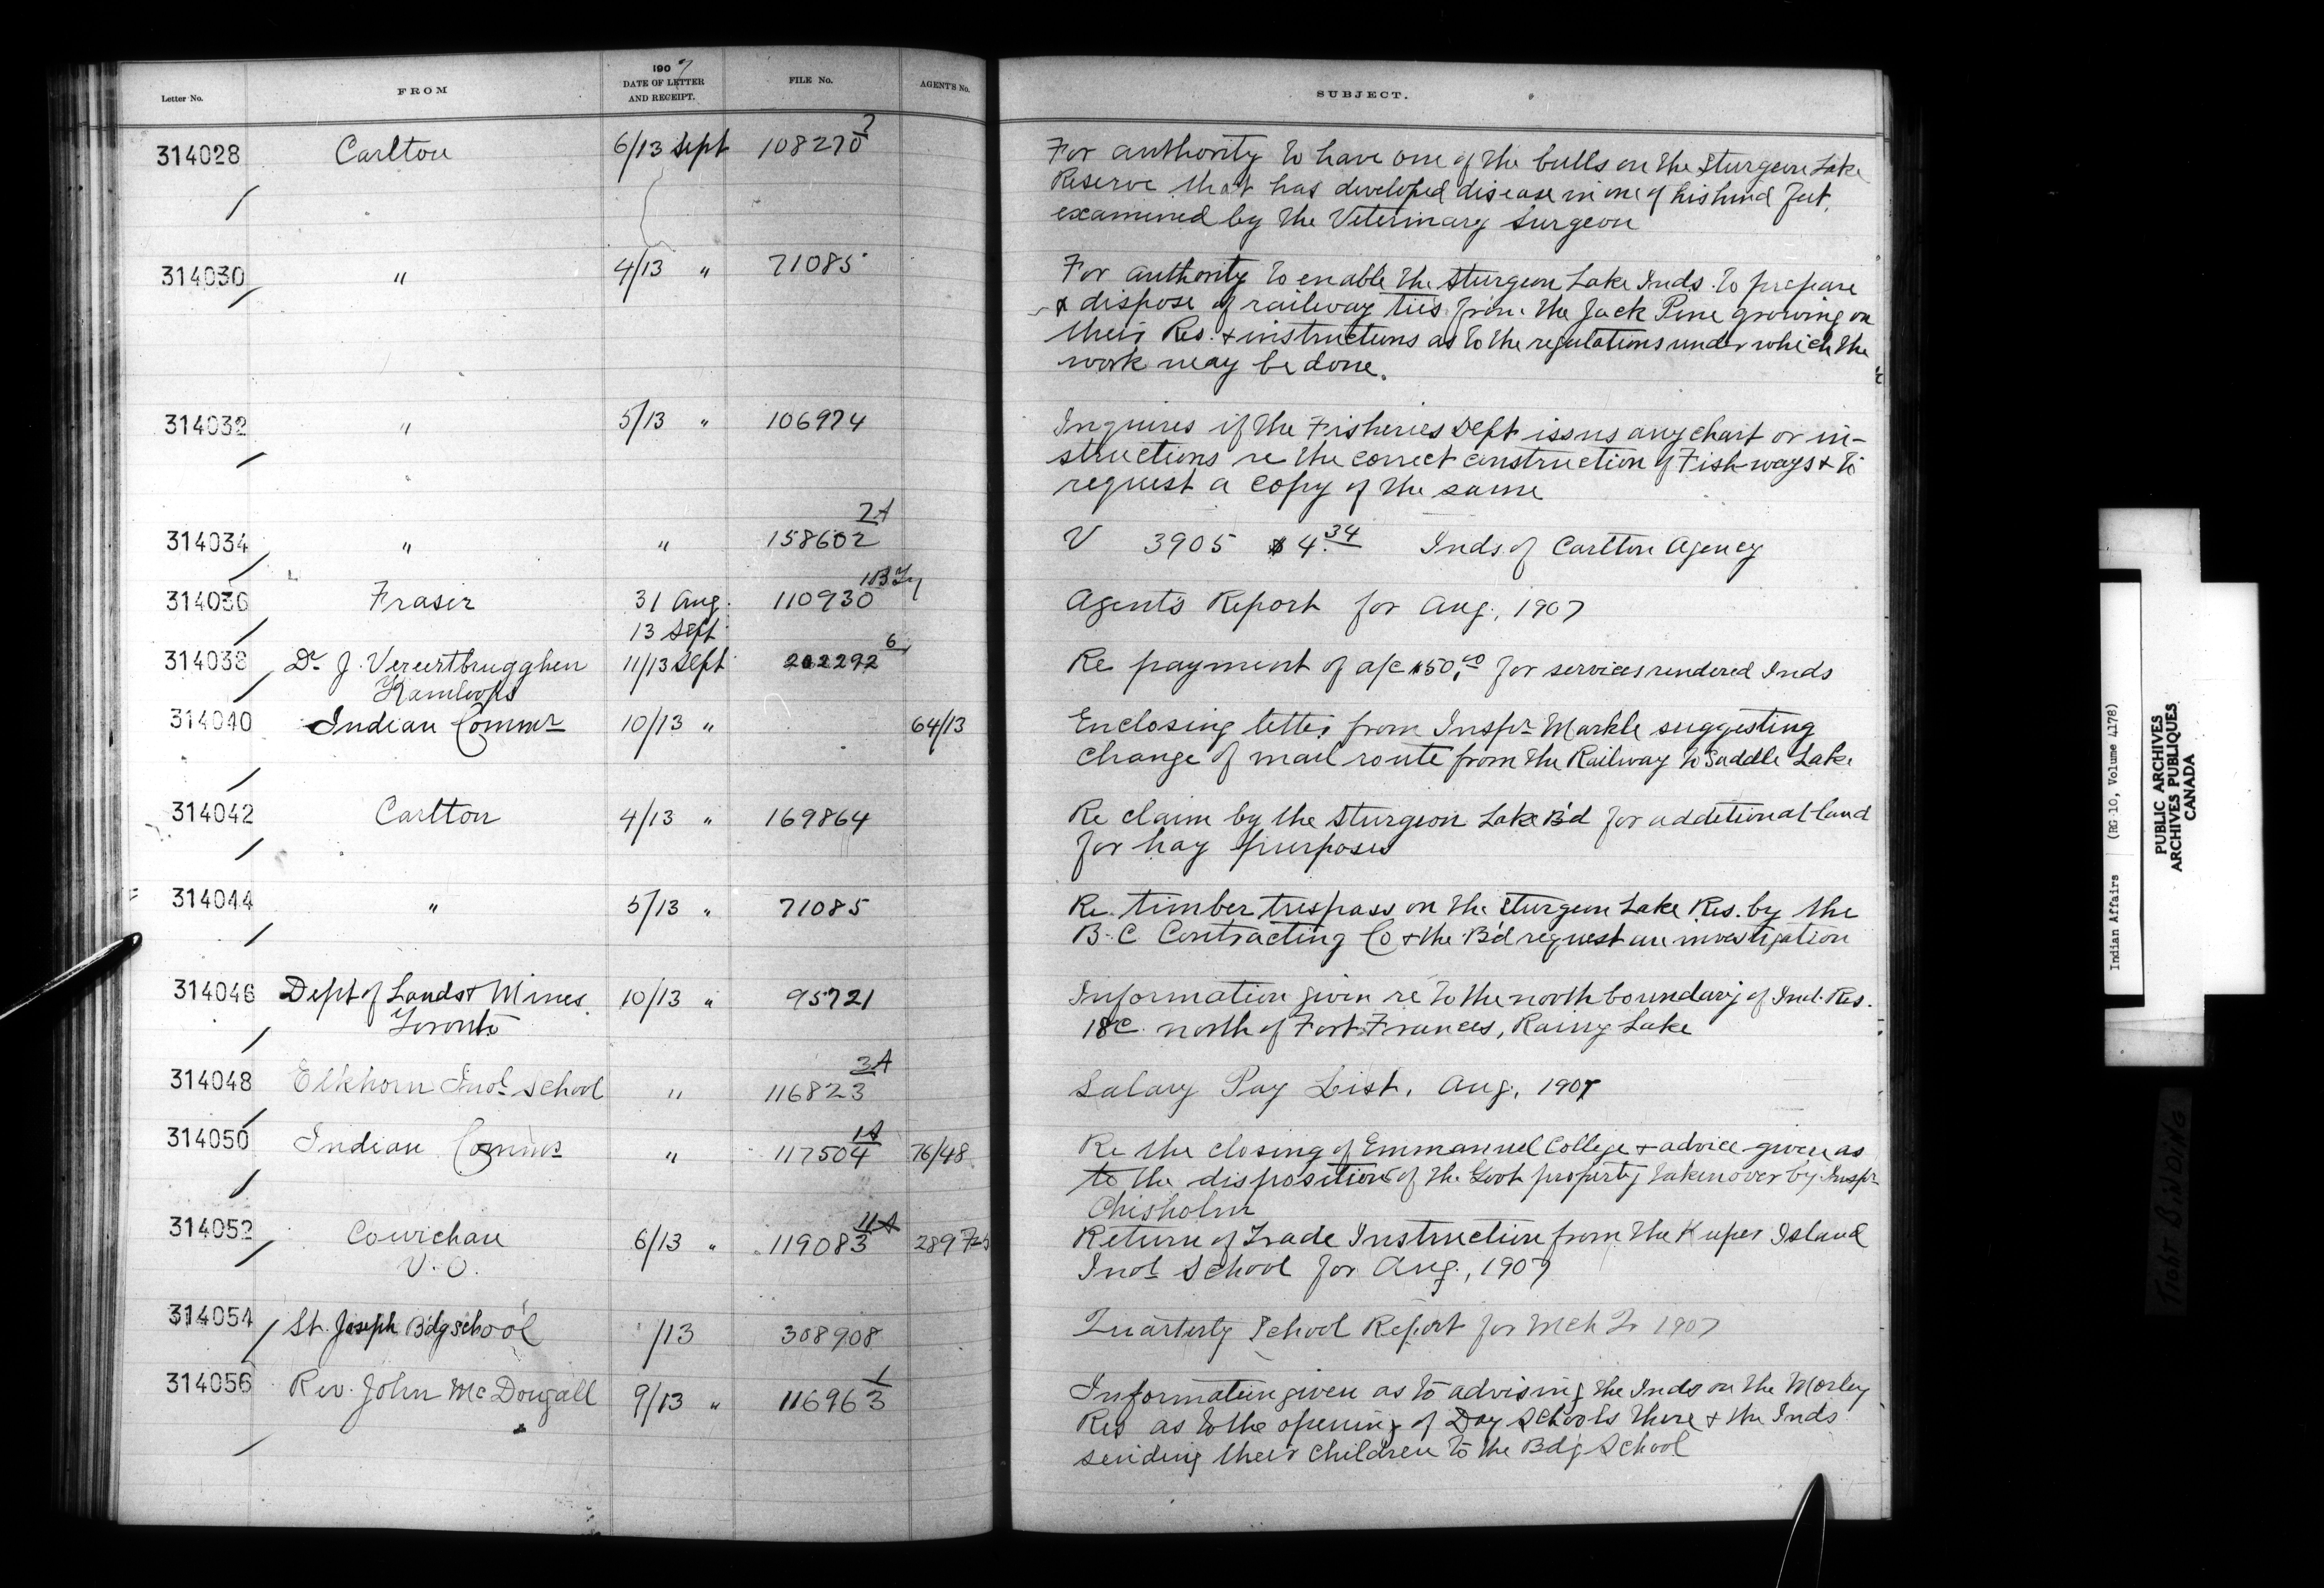 Letter No.
FROM
1907
DATE OF LETTER
AND RECEIPT.
FILE No.
AGENT'S No.
SUBJECT.
314028 Carlton 6/13 Sept 108270
For authority to have one of the bulls on the Sturgeon Lake
Reserve that has developed disease in one of his hind feet,
examined by the Veterinary Surgeon
314030 " 4/13 " 71085
For authority to enable the Sturgeon Lake Inds. to prepare
& dispose of railway ties from the Jack Pine growing on
their Res. & instructions as to the regulations under which the
work may be done.
314032 " 5/13 " 106974
Inquires if the Fisheries Dept issues any chart or in-
structions re the correct construction of Fish-ways & to
request a copy of the same
2A
314034 " " 158602
V 3905 $4.34 Inds of Carlton Agency
314036 Fraser 31 Aug. 110930
13 Sept
Agent's Report for Aug., 1907
6
314038 Dr J. Verertbrugghen 11/13 Sept 262292
Kamloops
Re payment of a/c $50.00 for services rendered Inds
314040 Indian Commr 10/13 " 64/13
Enclosing letter from Inspr Markle suggesting
change of mail route from the Railway to Saddle Lake
314042 Carlton 4/13 " 169864
Re claim by the Sturgeon Lake B'd for additional land
for hay purposes
314044 " 5/13 " 71085
Re. timber trespass on the Sturgeon Lake Res. by the
B.C Contracting Co & the B'd request an investigation
314046 Dept of Lands & Mines. 10/13 " 95721
Toronto
Information given re to the north boundary of Ind. Res.
18C north of Fort Frances, Rainy Lake
3A
314048 Elkhorn Indl School " 116823
Salary Pay List, Aug, 1907
1A
314050 Indian Commr " 117504 76/48
Re the closing of Emmanuel College & advice given as
to the disposition of the Govt property taken over by Inspr
Chisholm
11A
314052 Cowichan 6/13 " 119083 289
V.O.
Return of Trade Instruction from the Kuper Island
Indl School for Aug., 1907
314054 St. Joseph B'dg School /13 308908
Quarterly School Report for Mch Qr 1907
1
314056 Rev. John McDougall 9/13 " 116963
Information given as to advising the Inds on the Morley
Res as to the opening of Day Schools there & the Inds
sending their children to the Bdg School
Indian Affairs (RG 10, Volume 4178)
PUBLIC ARCHIVES
ARCHIVES PUBLIQUES
CANADA
BiNDiNG